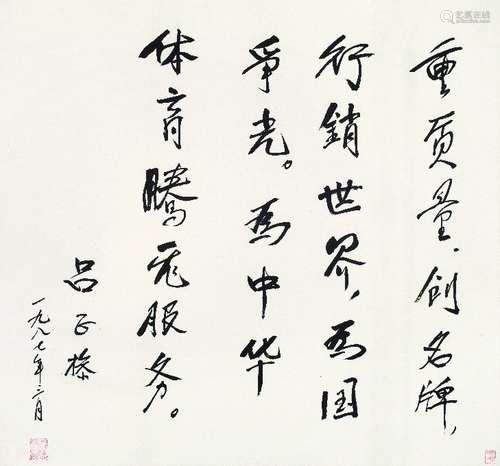 重质量、创名牌，
行銷世界，为国
爭光。为中华
体育騰飞服务。
吕正操
一九八七年三月